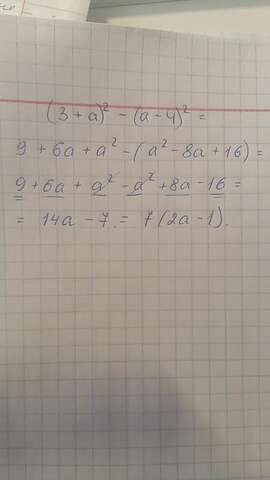 (3 + a)² - (a - 4)² =
9 + 6a + a² - (a² - 8a + 16) =
9 + 6a + a² - a² + 8a - 16 =
= 14a - 7 = 7(2a - 1).